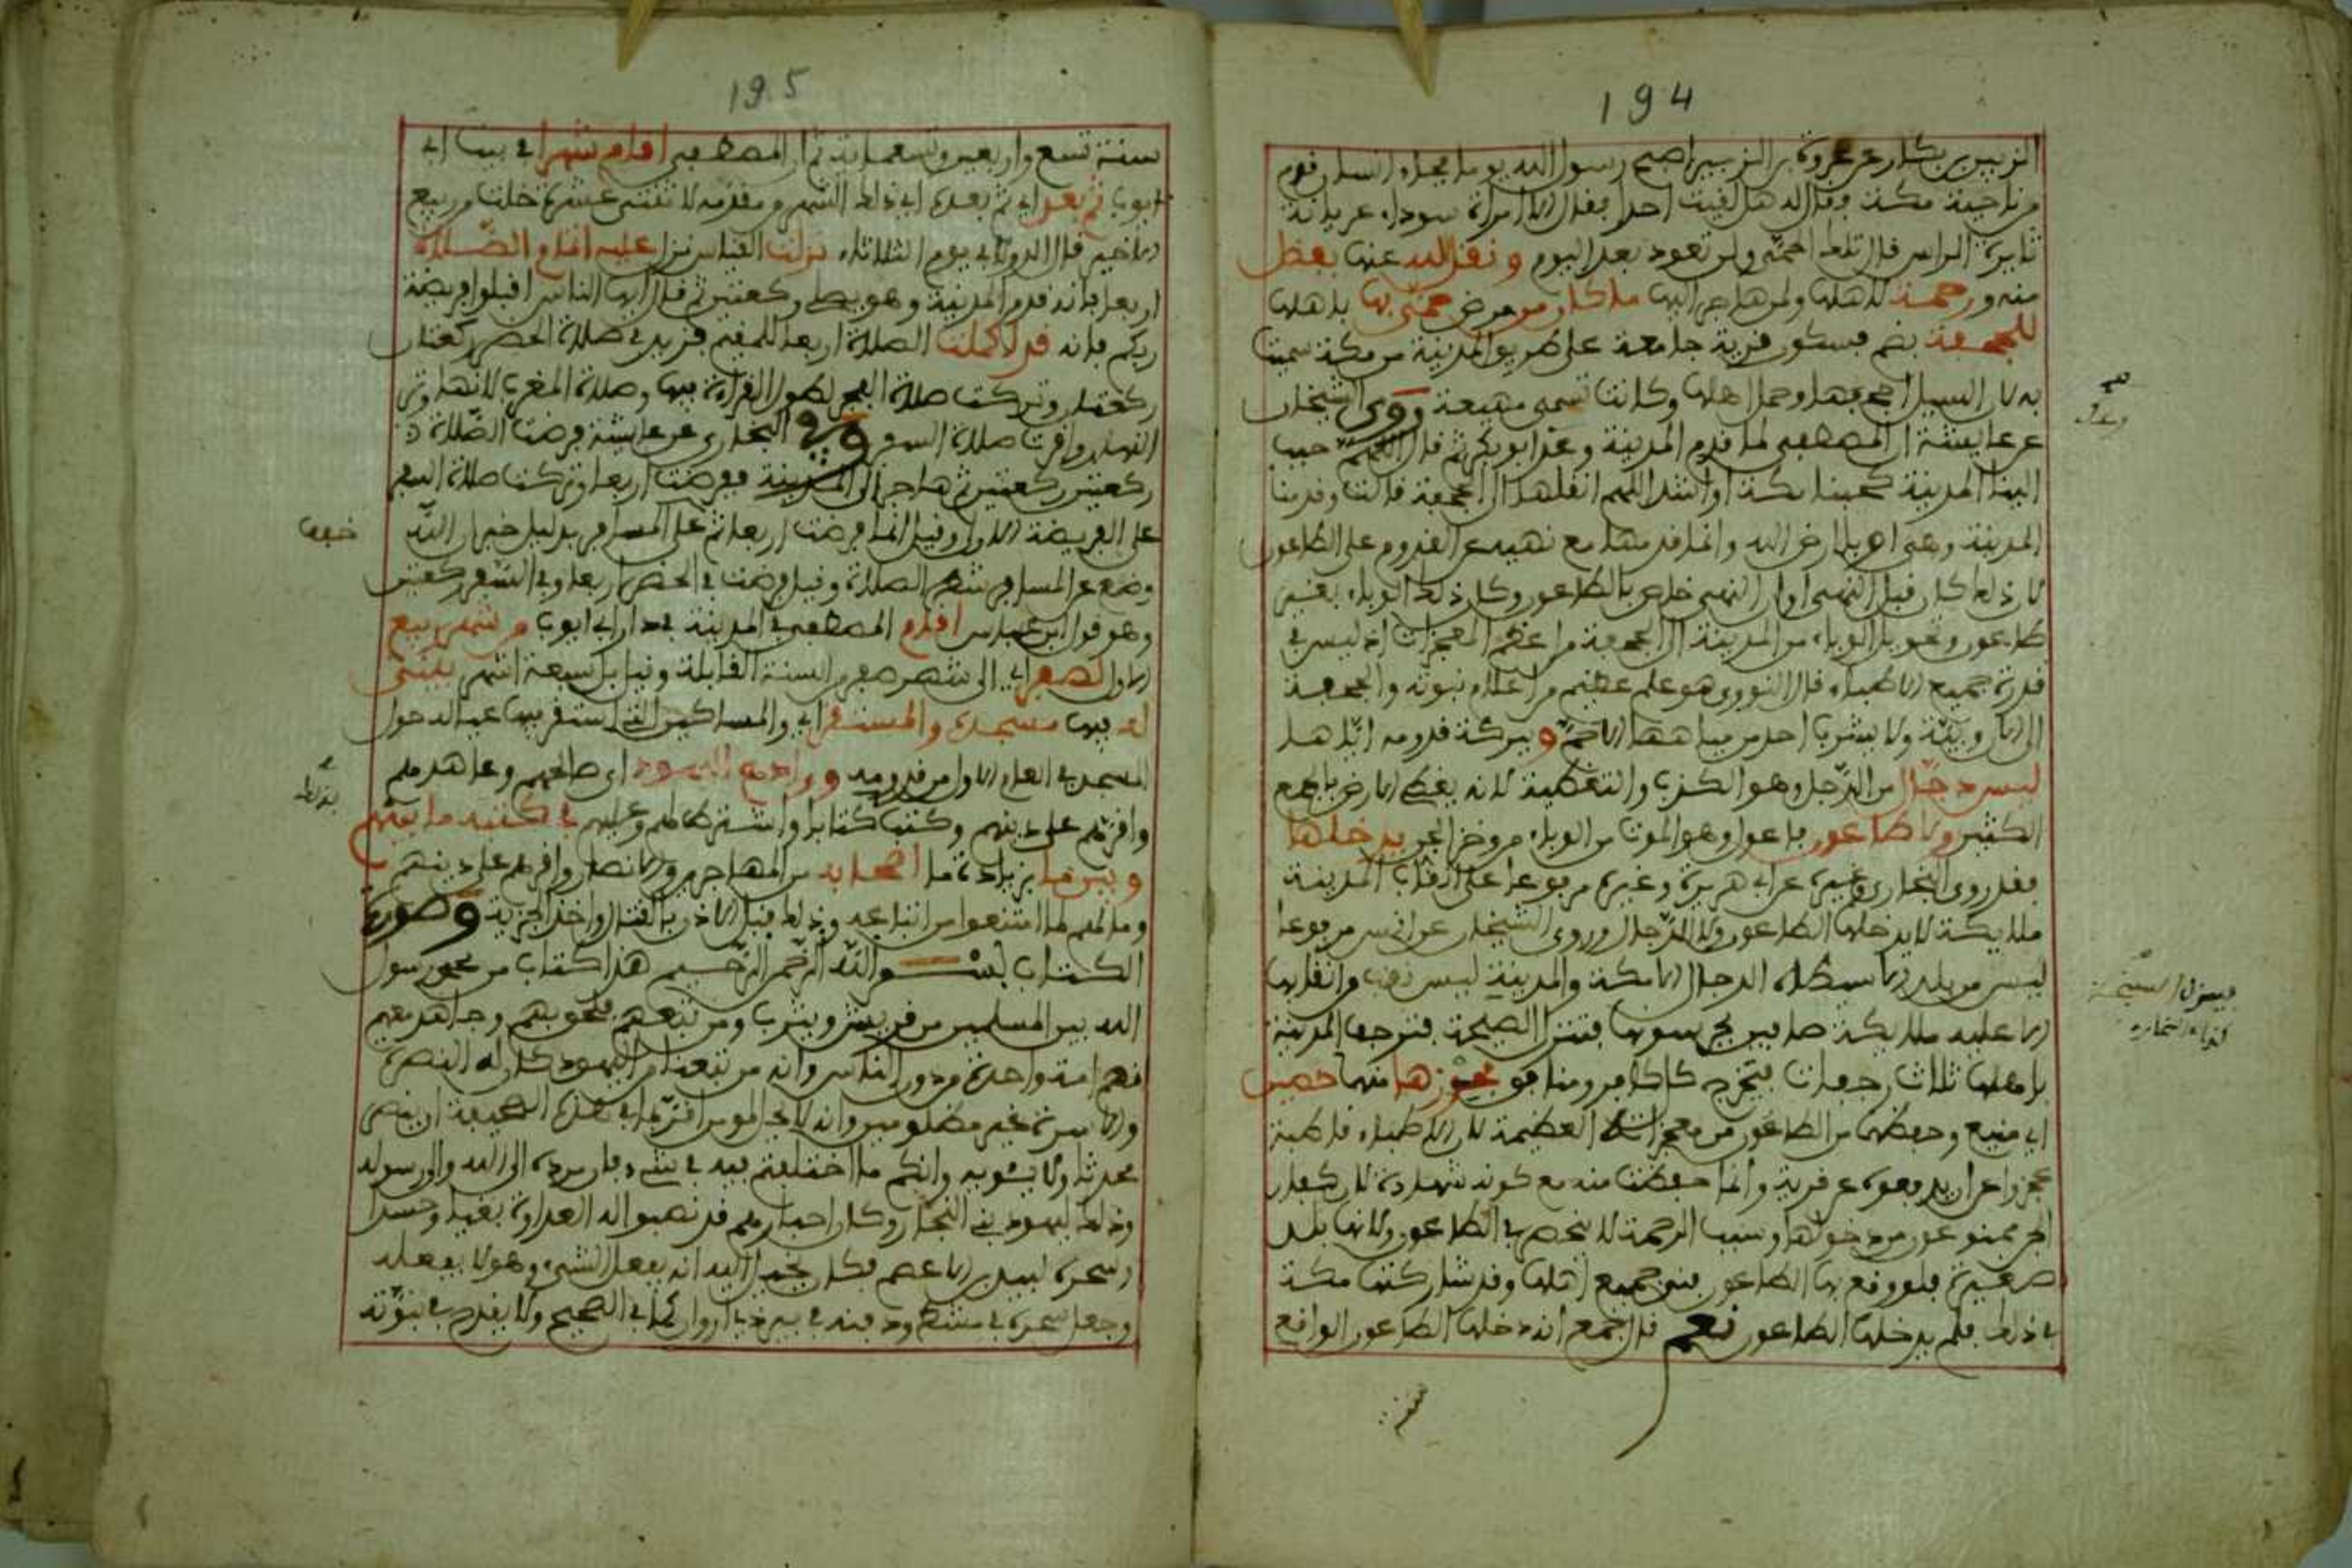 194
الزبير بن بكار عن عروة بن الزبير اصبح رسول الله يوما فجاءه انسان قدم
من ناحية مكة فقال له هل لقيت احدا فقال لا الا امراة سوداء عريانة
ثايرة الراس قال تلك الحمى ولن تعود بعد اليوم ونقل الله عنها بفضل
منه ورحمة لاهلها ولمن هاجر اليها ما كان من مرض حمى بها باهلها
للجحفة بضم فسكون قرية جامعة على طريق المدينة من مكة سميت
به لان السيل اجحفها وحمل اهلها وكانت تسمى مهيعة وروى الشيخان
عن عايشة ان المصطفى لما قدم المدينة وعك ابو بكر ثم قال اللهم حبب
الينا المدينة كحبنا مكة او اشد اللهم انقلها الى الجحفة قالت وقدمنا
المدينة وهى اوبا ارض الله وانما قدمها مع نهيه عن القدوم على الطاعون
لان ذلك كان قبل النهى او ان النهى خاص بالطاعون وكان ذلك الوباء بغير
طاعون وتحويل الوباء من المدينة الى الجحفة من اعظم المعجزات اذ ليس فى
قدرة جميع الاطباء قال النووى هو علم عظيم من اعلام نبوته والجحفة
الى الان وبيئة ولا يشرب احد من مياهها الا حم وببركة قدومه اياها
ليس دجال من الدجل وهو الكذب والتغطية لانه يغطى الارض بالجمع
الكثير ولا طاعون فاعول وهو الموت من الوباء من وخز الجن يدخلها
فقد روى البخارى وغيره عن ابى هريرة وغيره مرفوعا على انقاب المدينة
ملايكة لا يدخلها الطاعون ولا الدجال وروى الشيخان عن انس مرفوعا
ليس من بلد الا سيطاه الدجال الا مكة والمدينة ليس نقب من انقابها
الا عليه ملايكة صافين يحرسونها فينزل السبخة فترجف المدينة
باهلها ثلاث رجفات فيخرج كل كافر ومنافق فحوزها منهما حصين
اى منيع وحفظها من الطاعون من معجزاته العظيمة لان الاطباء قاطبة
عجزوا عن ان يدفعوه عن قرية وانما حفظت منه مع كونه شهادة لان كفار
الجن ممنوعون من دخولها وسبب الرحمة لا ينحصر فى الطاعون ولانها بلد
صغيرة فلو وقع بها الطاعون فنى جميع اهلها وقد شاركتها مكة
فى ذلك فلم يدخلها الطاعون نعم قال جمع انه دخلها الطاعون الواقع
سنة
195
سنة تسع واربعين وتسعماية ثم ان المصطفى اقام شهرا فى بيت ابى
ايوب ثم بعد اى ثم بعده اى ذلك الشهر ومقدمه لاثنتى عشرة خلت من ربيع
الاخير قال الدولابى يوم الثلاثاء نزلت القياس نزل عليه اتمام الصلاة
اربعا فانه قدم المدينة وهو يصلى ركعتين ثم قال ايها الناس اقبلوا فريضة
ربكم فانه قد كملت الصلاة اربعا للمقيم فزيد فى صلاة الحضر ركعتان
ركعتان وتركت صلاة الفجر لطول القراءة فيها وصلاة المغرب لانها وتر
النهار واقرت صلاة السفر وفى البخارى عن عايشة فرضت الصلاة
ركعتين ركعتين ثم هاجر الى المدينة ففرضت اربعا وتركت صلاة السفر
على الفريضة الاولى وقيل انما فرضت اربعا ثم على المسافر بدليل خبر ان الله
خفف
وضع عن المسافر شطر الصلاة وقيل فرضت فى الحضر اربعا وفى السفر ركعتين
وهو قول ابن عباس اقام المصطفى فى المدينة فى دار ابى ايوب من شهر ربيع
الاول لصفر اى الى شهر صفر من السنة القابلة وقيل بل سبعة اشهر يبنى
له فيها مسجده والمستقر اى والمساكن التى استقر فيها عياله حول
المسجد فى العام الاول من قدومه ووادع اليهود اى صالحهم وعاهدهم
واقرهم على دينهم وكتب كتابا واشترط لهم وعليهم فى كتبه ما بينهم
وبين ما بزيادة ما اصحابه من المهاجرين والانصار واقرهم على دينهم
ومالهم لما امتنعوا من اتباعه وذلك قبل الاذن بالقتال واخذ الجزية وصورة
الكتاب بسم الله الرحمن الرحيم هذا كتاب من محمد رسول
الله بين المسلمين من قريش ويثرب ومن تبعهم فلحق بهم وجاهد معهم
انهم امة واحدة من دون الناس وانه من تبعنا من اليهود كان له النصرة
والاسوة غير مظلومين وانه لا يحل لمومن اقر بما فى هذه الصحيفة ان ينصر
محدثا ولا يئويه وانكم ما اختلفتم فيه فى شىء فان مرده الى الله والى رسوله
وذلك ليهود بنى النجار وكان احبارهم قد نصبوا له العداوة بغيا وحسدا
وسحره لبيد بن الاعصم فكان يخيل اليه انه يفعل الشىء وهو لا يفعله
وجعل سحره فى مشط ودفنه فى بير ذى اروان كما فى الصحيح ولا يقدح فى نبوته